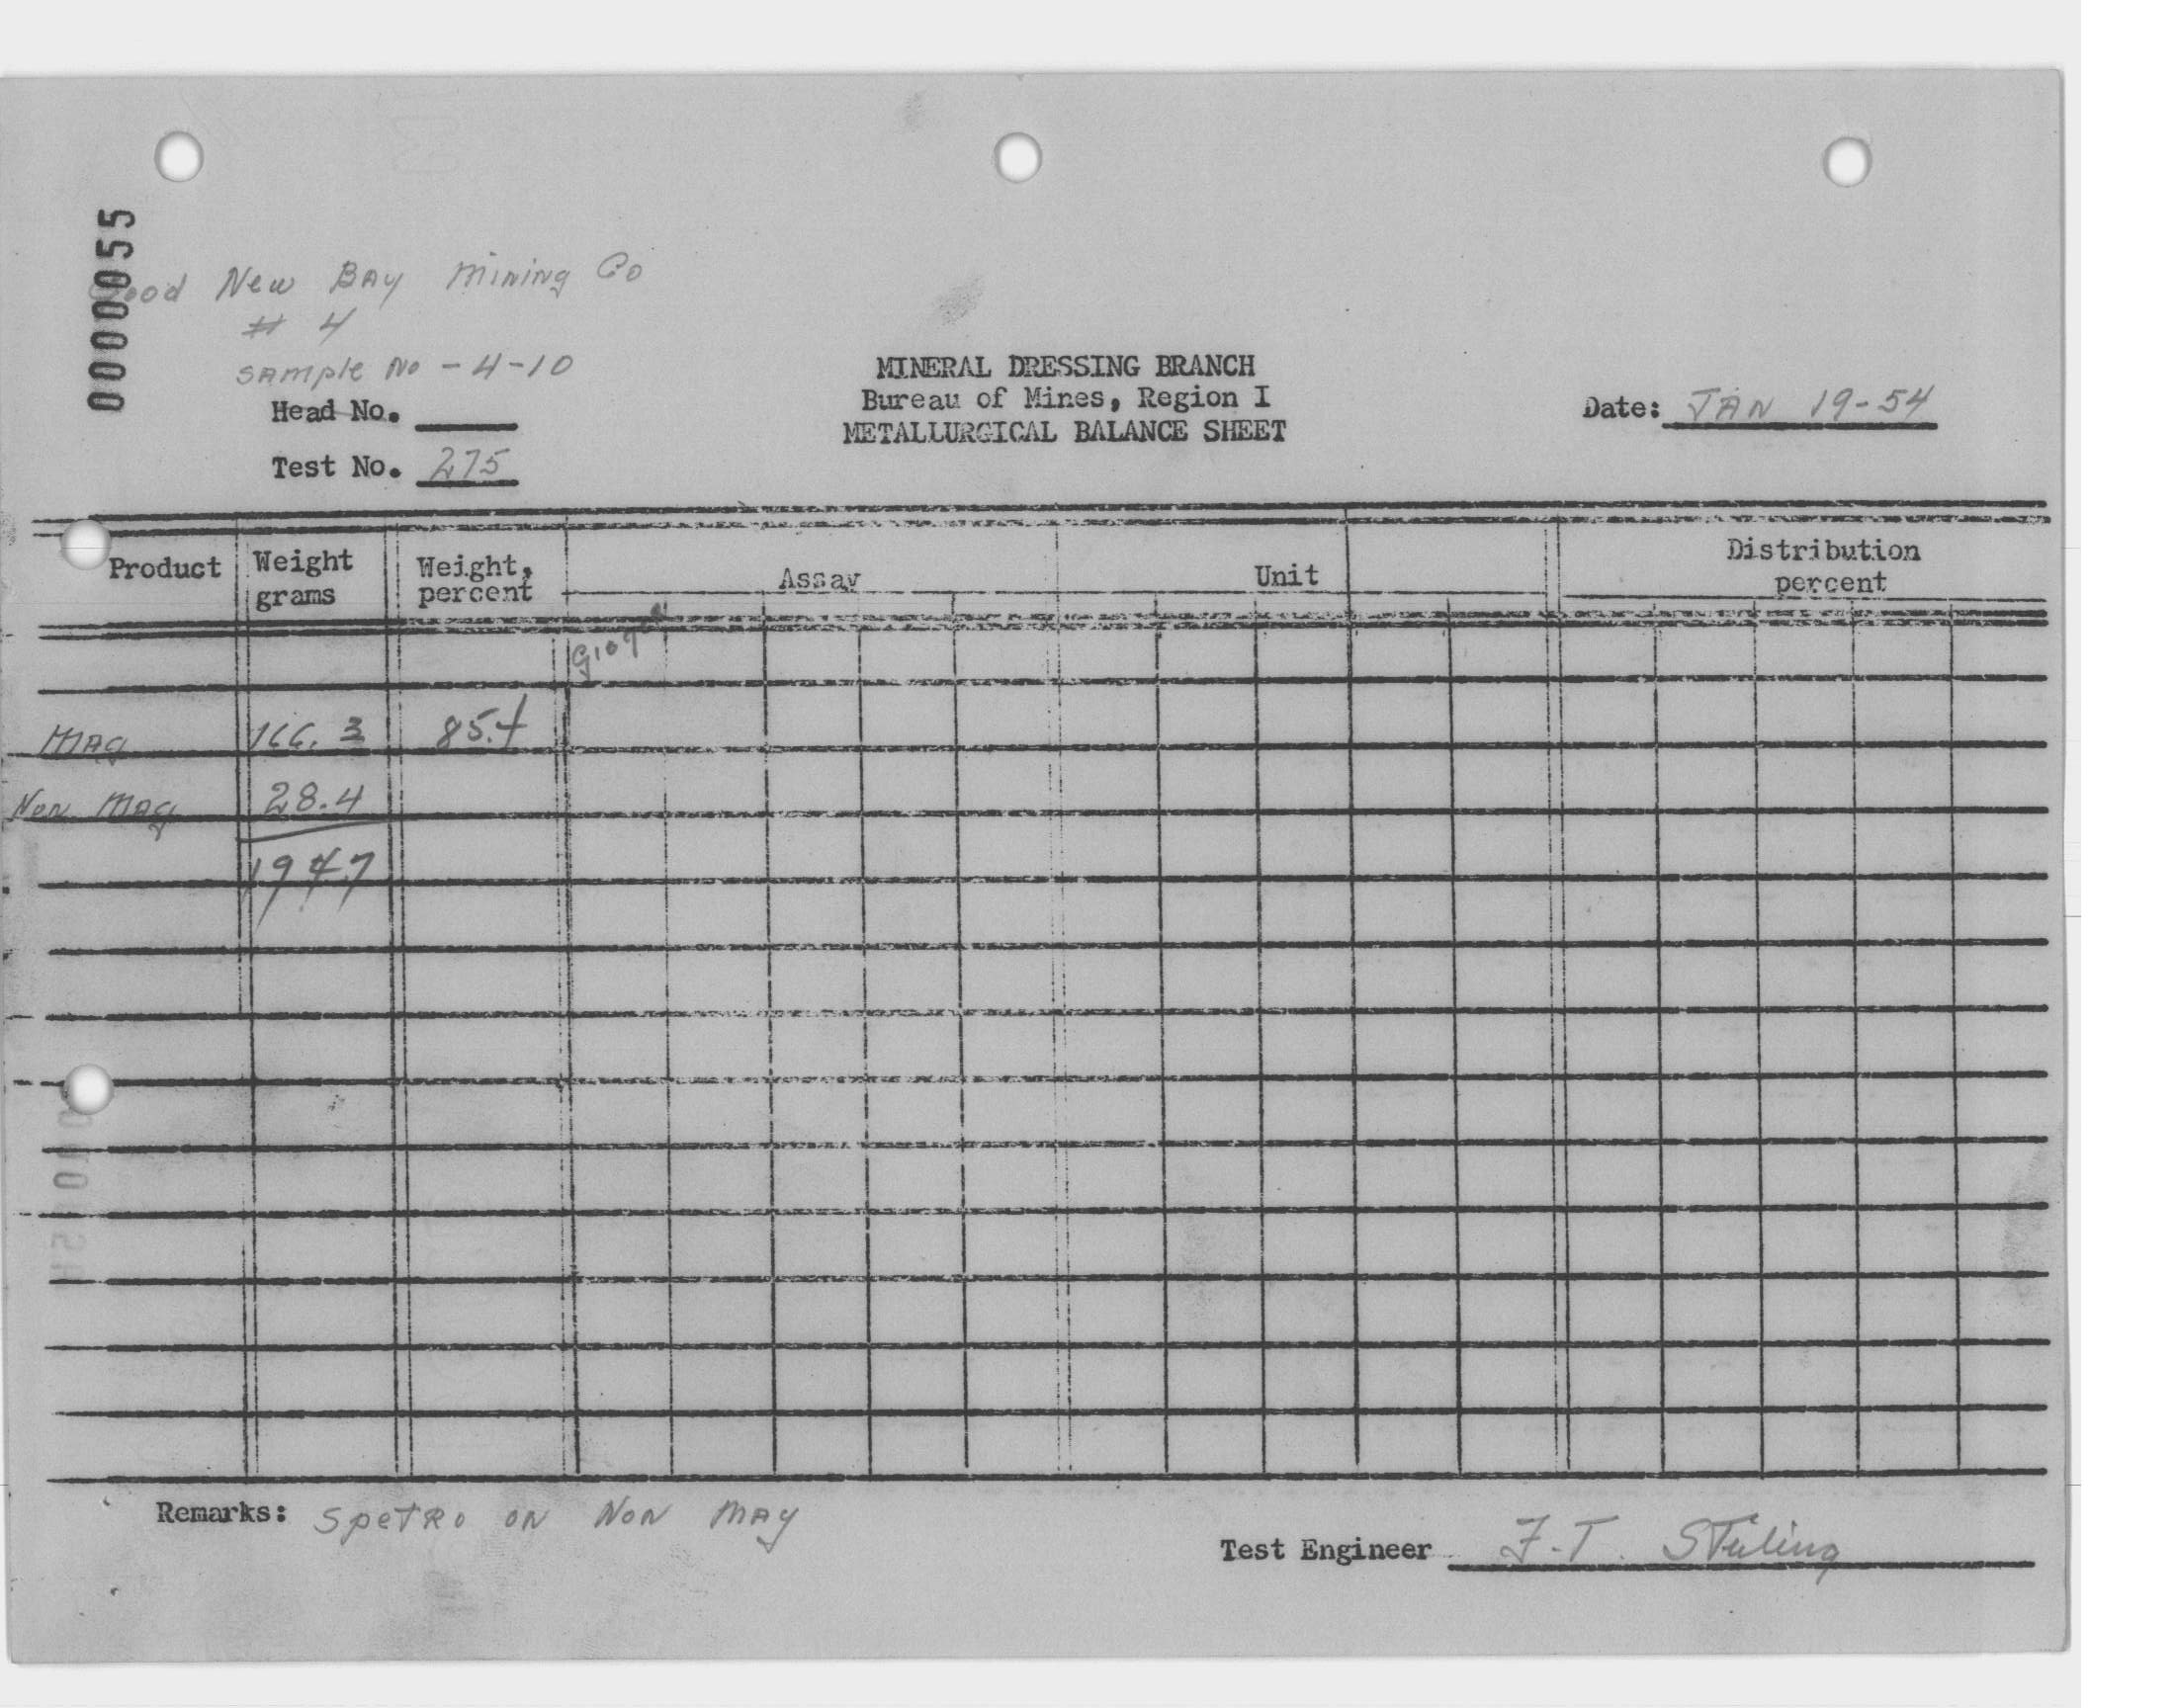 0000055
Good New BAy Mining Co
# 4
SAmple No - 4-10
Head No.
Test No. 275
MINERAL DRESSING BRANCH
Bureau of Mines, Region I
METALLURGICAL BALANCE SHEET
Date: JAN 19-54
Product Weight grams Weight, percent Assay Unit Distribution percent
MAg 166.3 85.4
Non MAg 28.4
194.7
Remarks: SpeTRo ON NoN MAg
Test Engineer F.T.